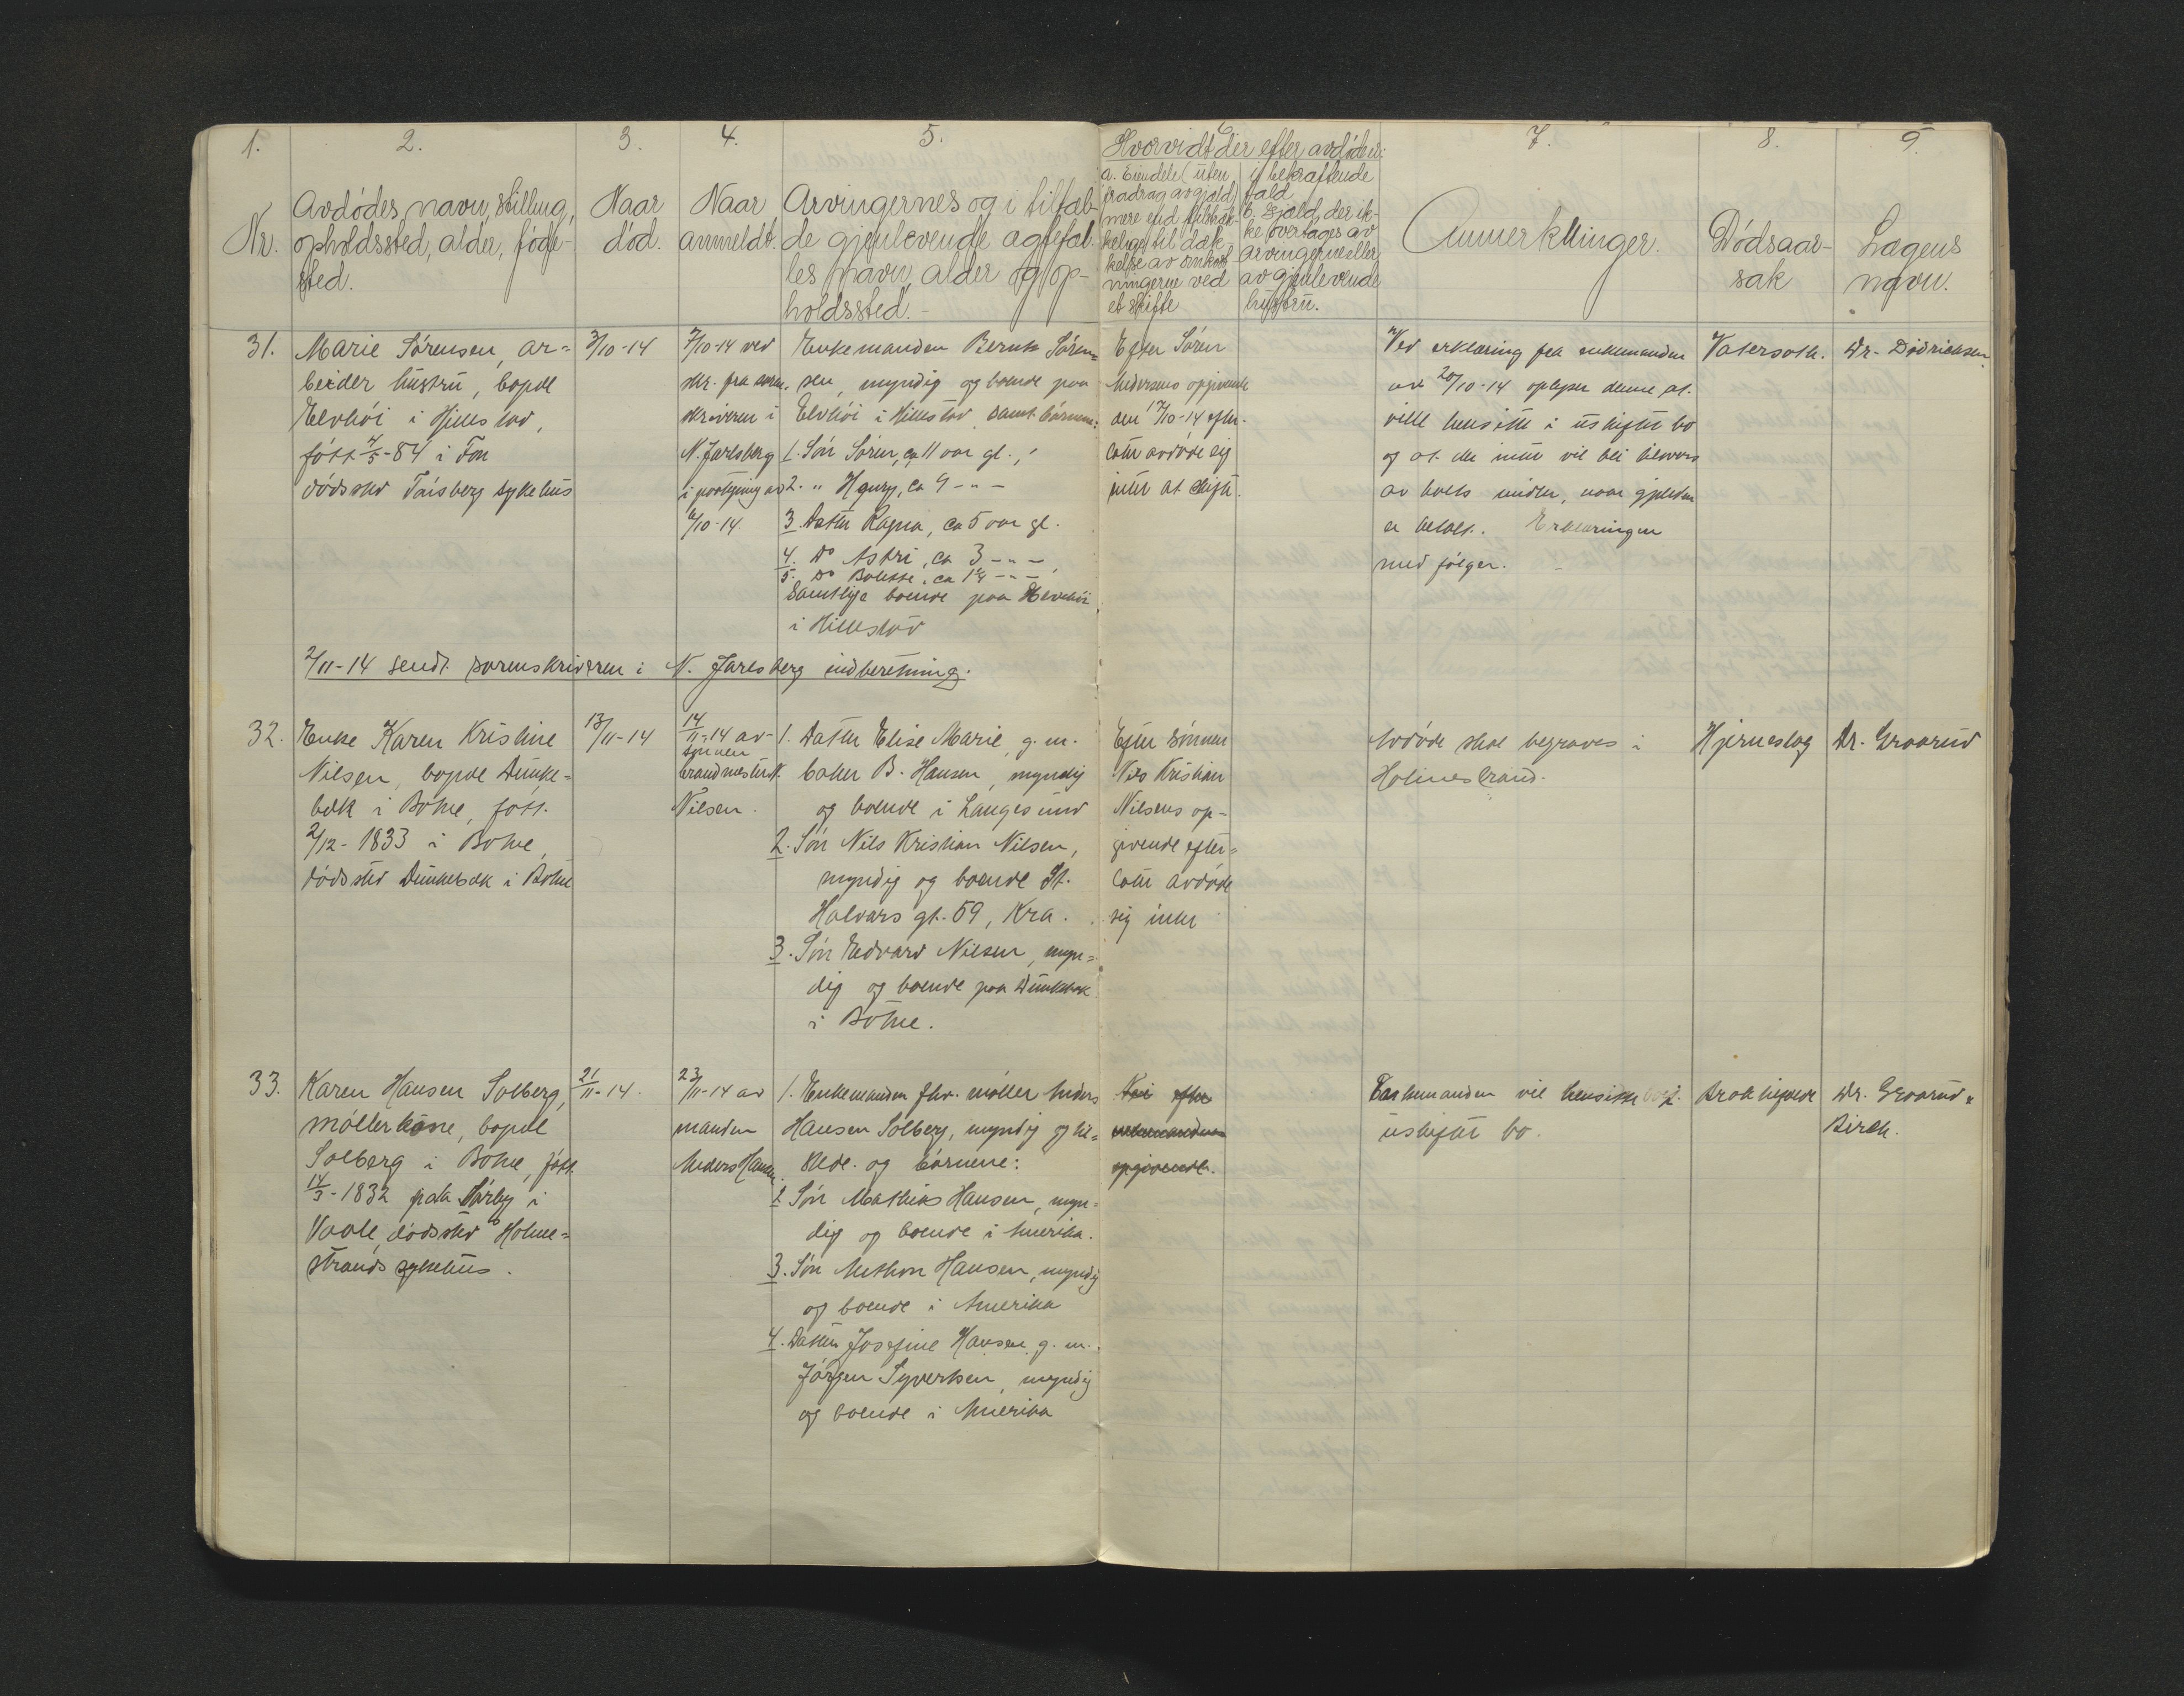 1.
2.
3.
4.
5.
6
7.
8.
9.
Nr.
Avdödes navn, stilling,
opholdssted, alder, föde-
sted.
Naar
död.
Naar
anmeldt.
Arvingernes og i tilfæl-
de gjenlevende ægtefæl-
les navn, alder og op-
holdssted.-
Hvorvidt der efter avdöde er:
a. Eiendele (uten
fradrag av gjæld)
mere end tilstræk-
kelige til dæk-
kelse av omkost-
ningerne ved
et skifte
i bekræftende
fald
b. Gjæld, der ik-
ke overtages av
arvingerne eller
av gjenlevende
hustru.
Anmerkninger.
Dödsaar-
sak
Lægens
navn.
31.
Marie Sörensen, ar=
beider hustru, bopæl
Elvhöi i Hillestad,
fött 4/5-84 i Fon
dödssted Tönsberg sykehus
3/10-14
7/10-14 ved
skr. fra soren.
skriveren i
N. Jarlsberg
6/10-14.
Enkemanden Bernt Sören=
sen, myndig og boende paa
Elvhöi i Hillestad samt börnene:
1. Sön Sören, ca 11 aar gl.,
2. " Henry, ca 9 - " -
3. Datter Ragna, ca 5 aar gl.
4. Do Astri, ca 3 - " -,
5. Do ca 1 3/4 - " -,
Samtlige boende paa Elvehöi
i Hillestad
Efter Sören
Andersens opgivende
den 17/10-14 efter-
latte avdöde sig
intet at skifte.
Ved erklæring fra enkemanden
av 20/10-14 oplyser denne at
ville hensitte i uskiftet bo
og at der intet vil bli tilovers
av boets midler, naar gjælden
er betalt. Erklæringen
medfölger.
Vatersott.
Dr. Dodrichsen
2/11-14 sendt sorenskriveren i N. Jarlsberg indberetning.
32.
Enke Karen Kristine
Nilsen, bopæl Dunke=
bæk i Botne, fött
2/12-1833 i Botne,
dödssted Dunkebæk i Botne
13/11-14
14/11-14 av
sönnen
brandmester N.
Nilsen.
1. Datter Elise Marie, g. m.
baker B. Hansen, myndig
og boende i Langesund
2. Sön Nils Kristian Nilsen,
myndig og boende St.
Halvars gt. 59, Kra.
3. Sön Edvard Nilsen, myn=
dig og boende paa Dunkebæk
i Botne.
Efter sönnen
Nils Kristian
Nilsens op-
givende efter=
latte avdöde
sig intet
Avdöde skal begraves i
Holmestrand.
Hjerneslag
Dr. Graarud
33.
Karen Hansen Solberg,
möllerkone, bopæl
Solberg i Botne, fött
14/3-1832 paa Sörby i
Vaale, dödssted Holme=
strands sykehus.
21/11-14.
23/11-14 av
manden
Anders Hansen
1. Enkemanden fhv. möller Anders
Hansen Solberg, myndig og
og börnene:
2. Sön Mathias Hansen, myn=
dig og boende i Amerika.
3. Sön Anthon Hansen, myndig
og boende i Amerika
4. Datter Josefine Hansen g. m.
Jörgen Syversen, myndig
og boende i Amerika
Nei efter
enkemandens
opgivende.
Enkemanden vil hensitte i
uskiftet bo.
Brok
Dr. Graarud &
Birch.